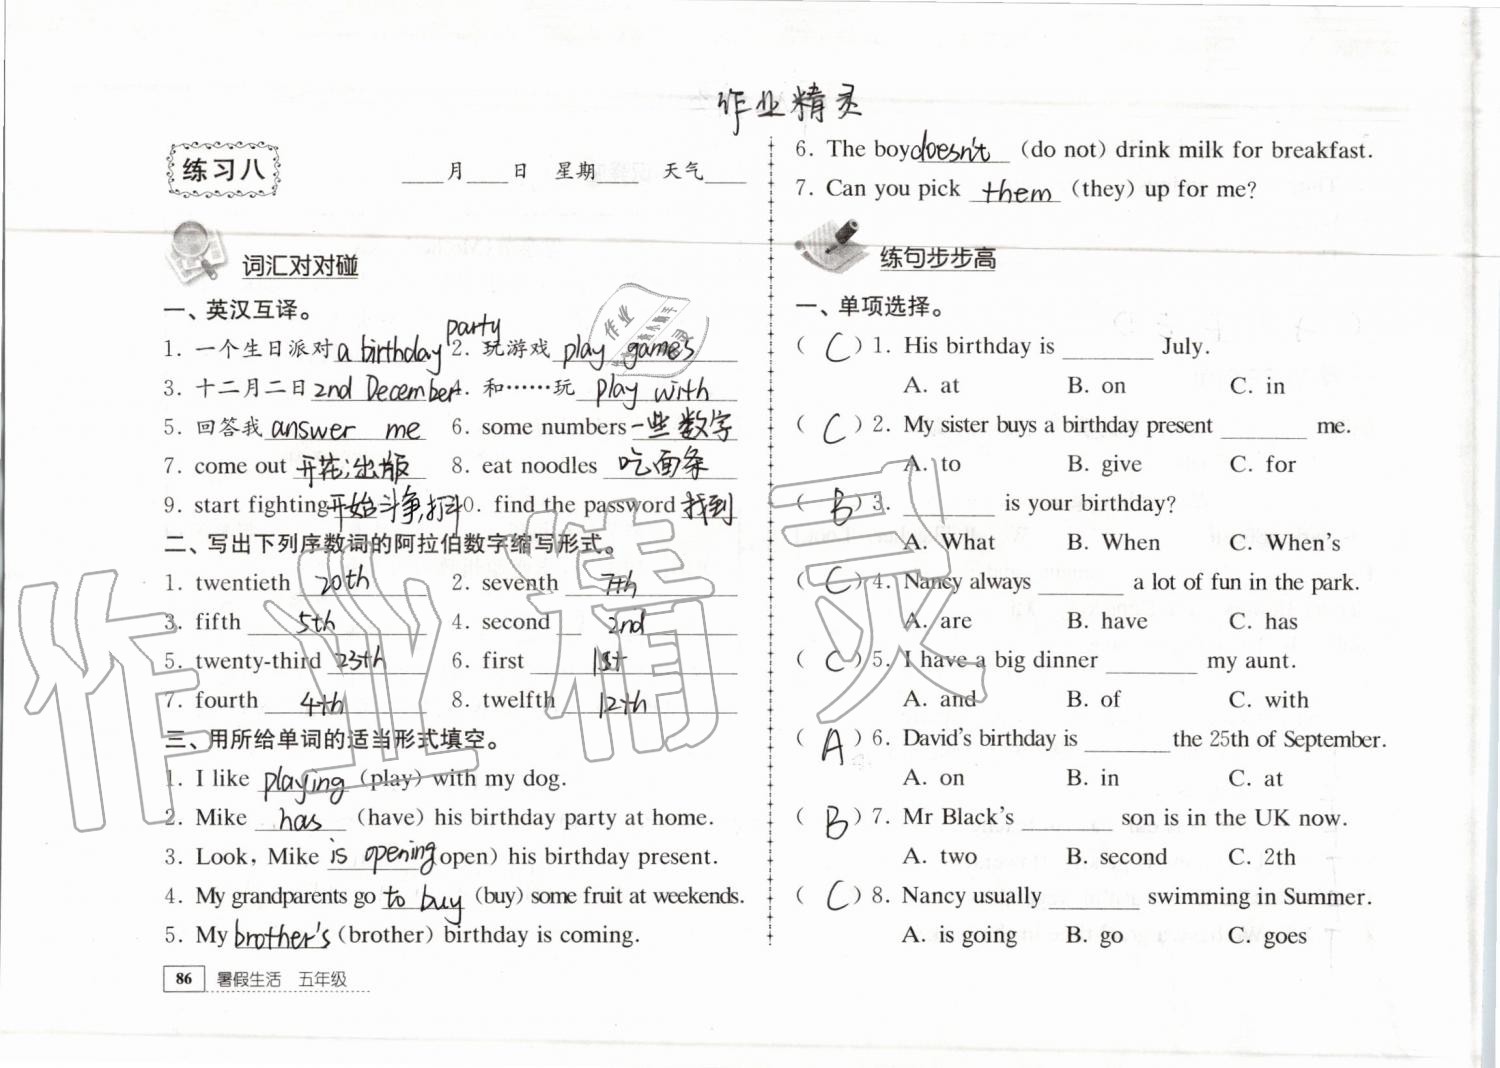 作业精灵
练习八
____月____日 星期____ 天气____
词汇对对碰
一、英汉互译。
1. 一个生日派对 a birthday party 2. 玩游戏 play games
3. 十二月二日 2nd December 4. 和……玩 play with
5. 回答我 answer me 6. some numbers 一些数字
7. come out 开花;出版 8. eat noodles 吃面条
9. start fighting 开始斗争,打斗 10. find the password 找到
二、写出下列序数词的阿拉伯数字缩写形式。
1. twentieth 20th 2. seventh 7th
3. fifth 5th 4. second 2nd
5. twenty-third 23th 6. first 1st
7. fourth 4th 8. twelfth 12th
三、用所给单词的适当形式填空。
1. I like playing (play) with my dog.
2. Mike has (have) his birthday party at home.
3. Look, Mike is opening (open) his birthday present.
4. My grandparents go to buy (buy) some fruit at weekends.
5. My brother's (brother) birthday is coming.
86 暑假生活 五年级
6. The boy doesn't (do not) drink milk for breakfast.
7. Can you pick them (they) up for me?
练句步步高
一、单项选择。
( C ) 1. His birthday is ________ July.
A. at B. on C. in
( C ) 2. My sister buys a birthday present ________ me.
A. to B. give C. for
( B ) 3. ________ is your birthday?
A. What B. When C. When's
( C ) 4. Nancy always ________ a lot of fun in the park.
A. are B. have C. has
( C ) 5. I have a big dinner ________ my aunt.
A. and B. of C. with
( A ) 6. David's birthday is ________ the 25th of September.
A. on B. in C. at
( B ) 7. Mr Black's ________ son is in the UK now.
A. two B. second C. 2th
( C ) 8. Nancy usually ________ swimming in Summer.
A. is going B. go C. goes
作业精灵